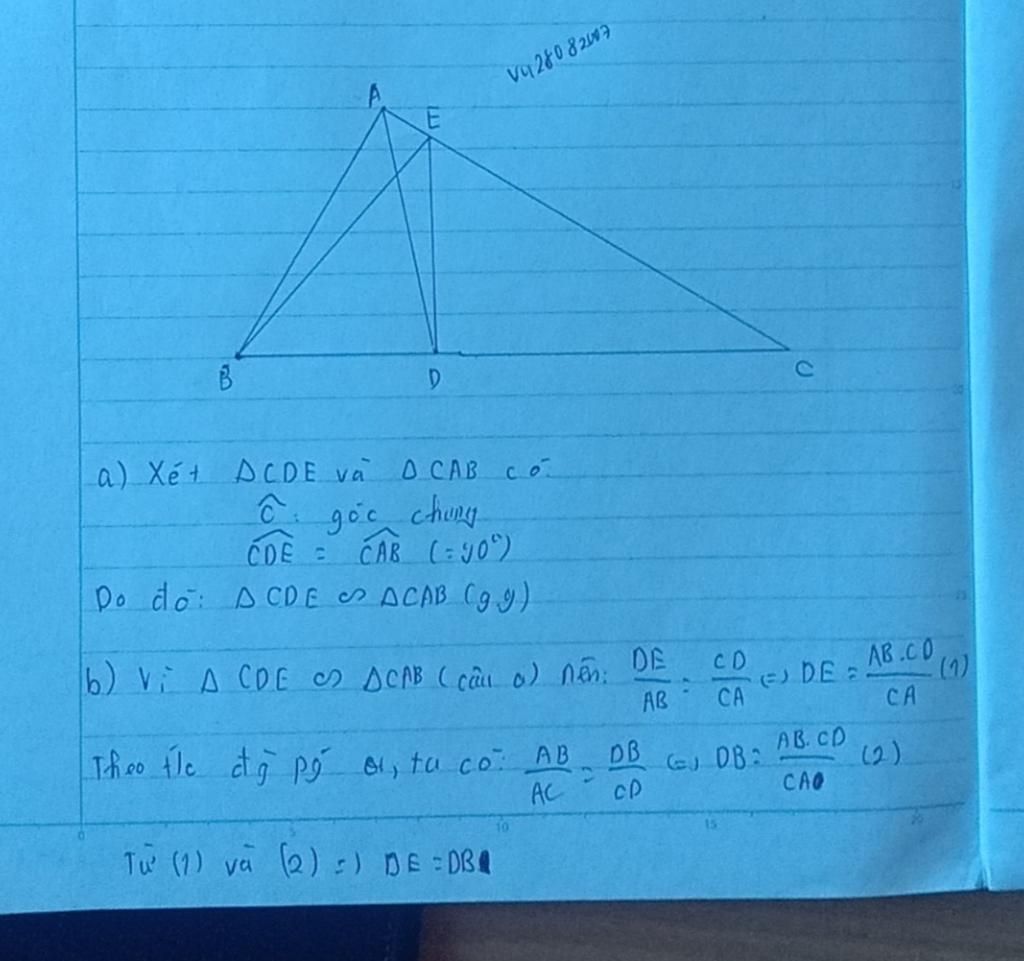 Vy28082007
A
E
B
D
C
a) Xét ΔCDE và ΔCAB có:
Ĉ: góc chung
CDE = CAB (=90°)
Do đó: ΔCDE ∽ ΔCAB (g.g)
b) Vì ΔCDE ∽ ΔCAB (câu a) nên: DE/AB = CD/CA (=) DE = AB.CD/CA (1)
Theo t/c đg pg, ta có: AB/AC = DB/CD (=) DB = AB.CD/CA (2)
0 5 10 15 20
Từ (1) và (2) =) DE = DB